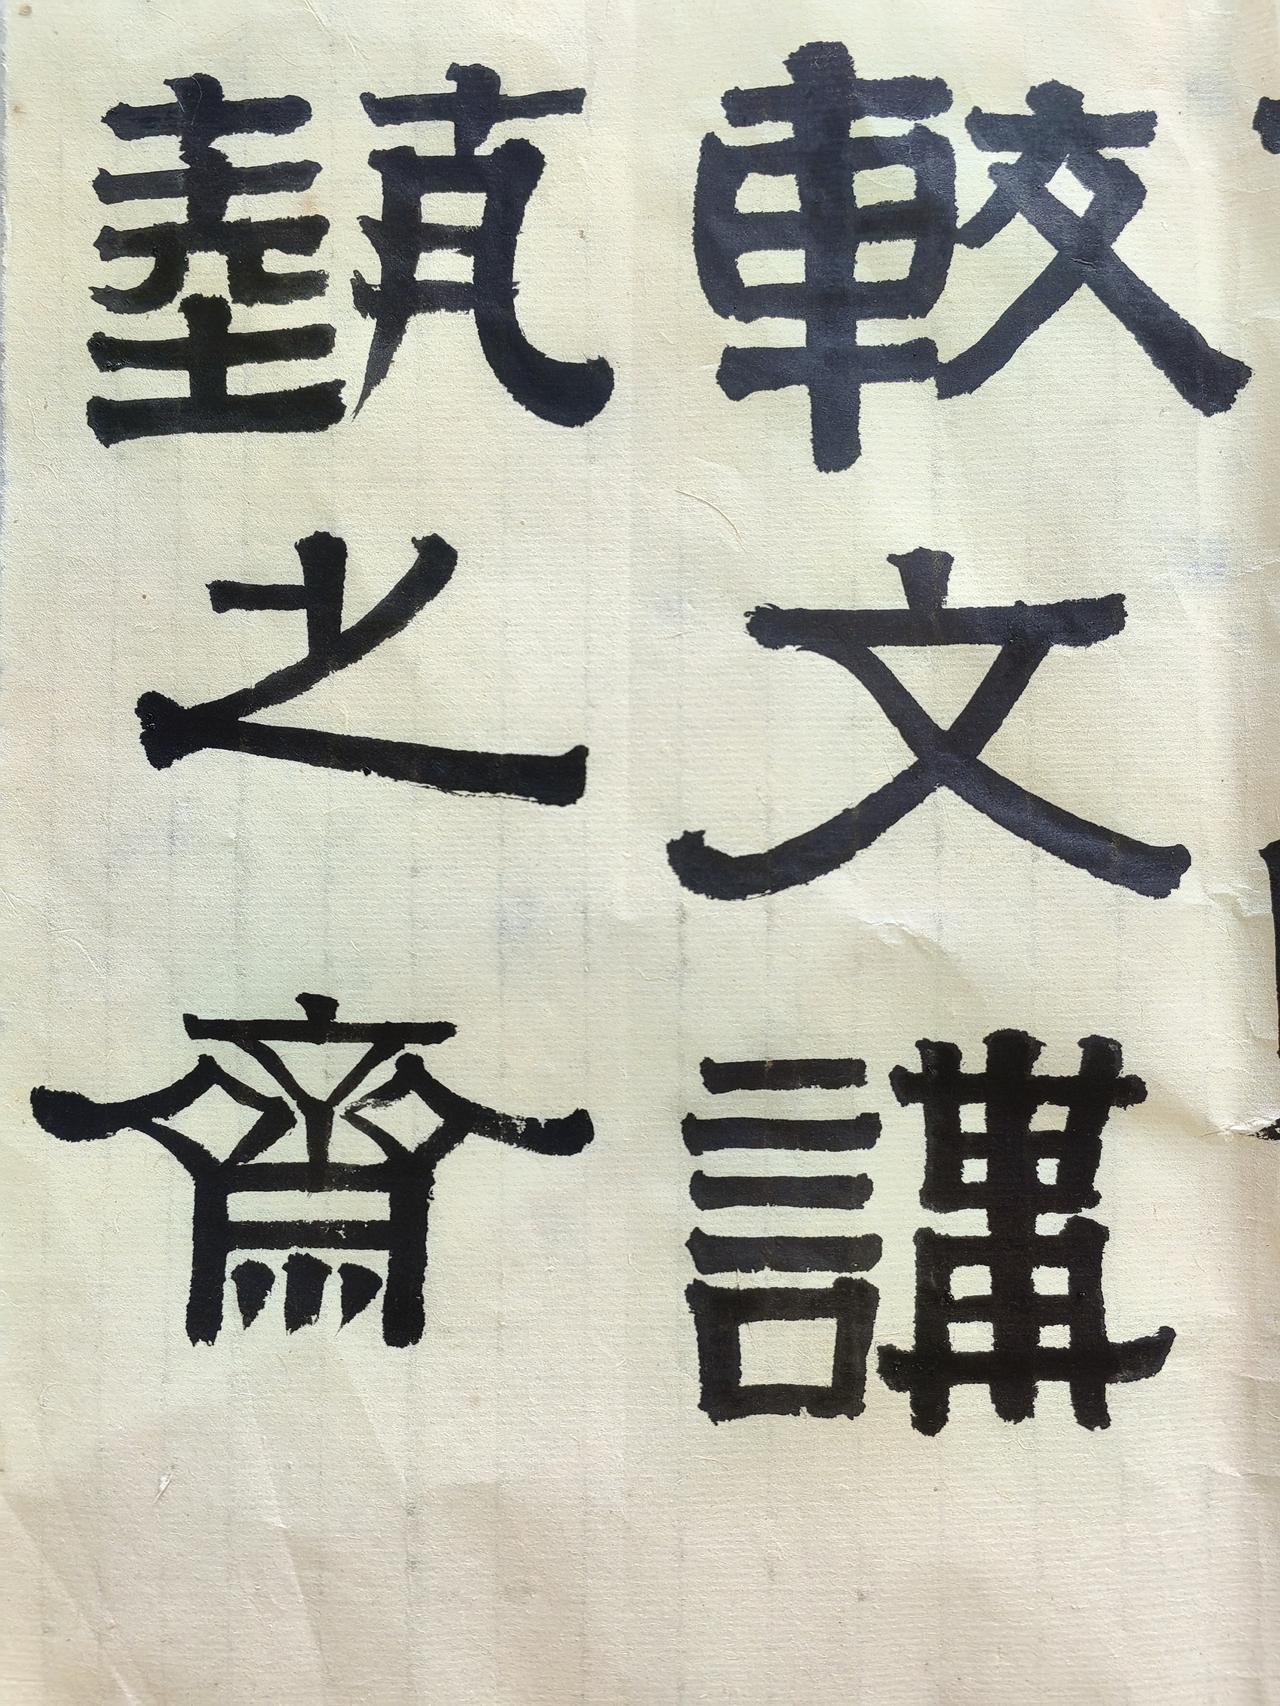 較文講
埶之齋